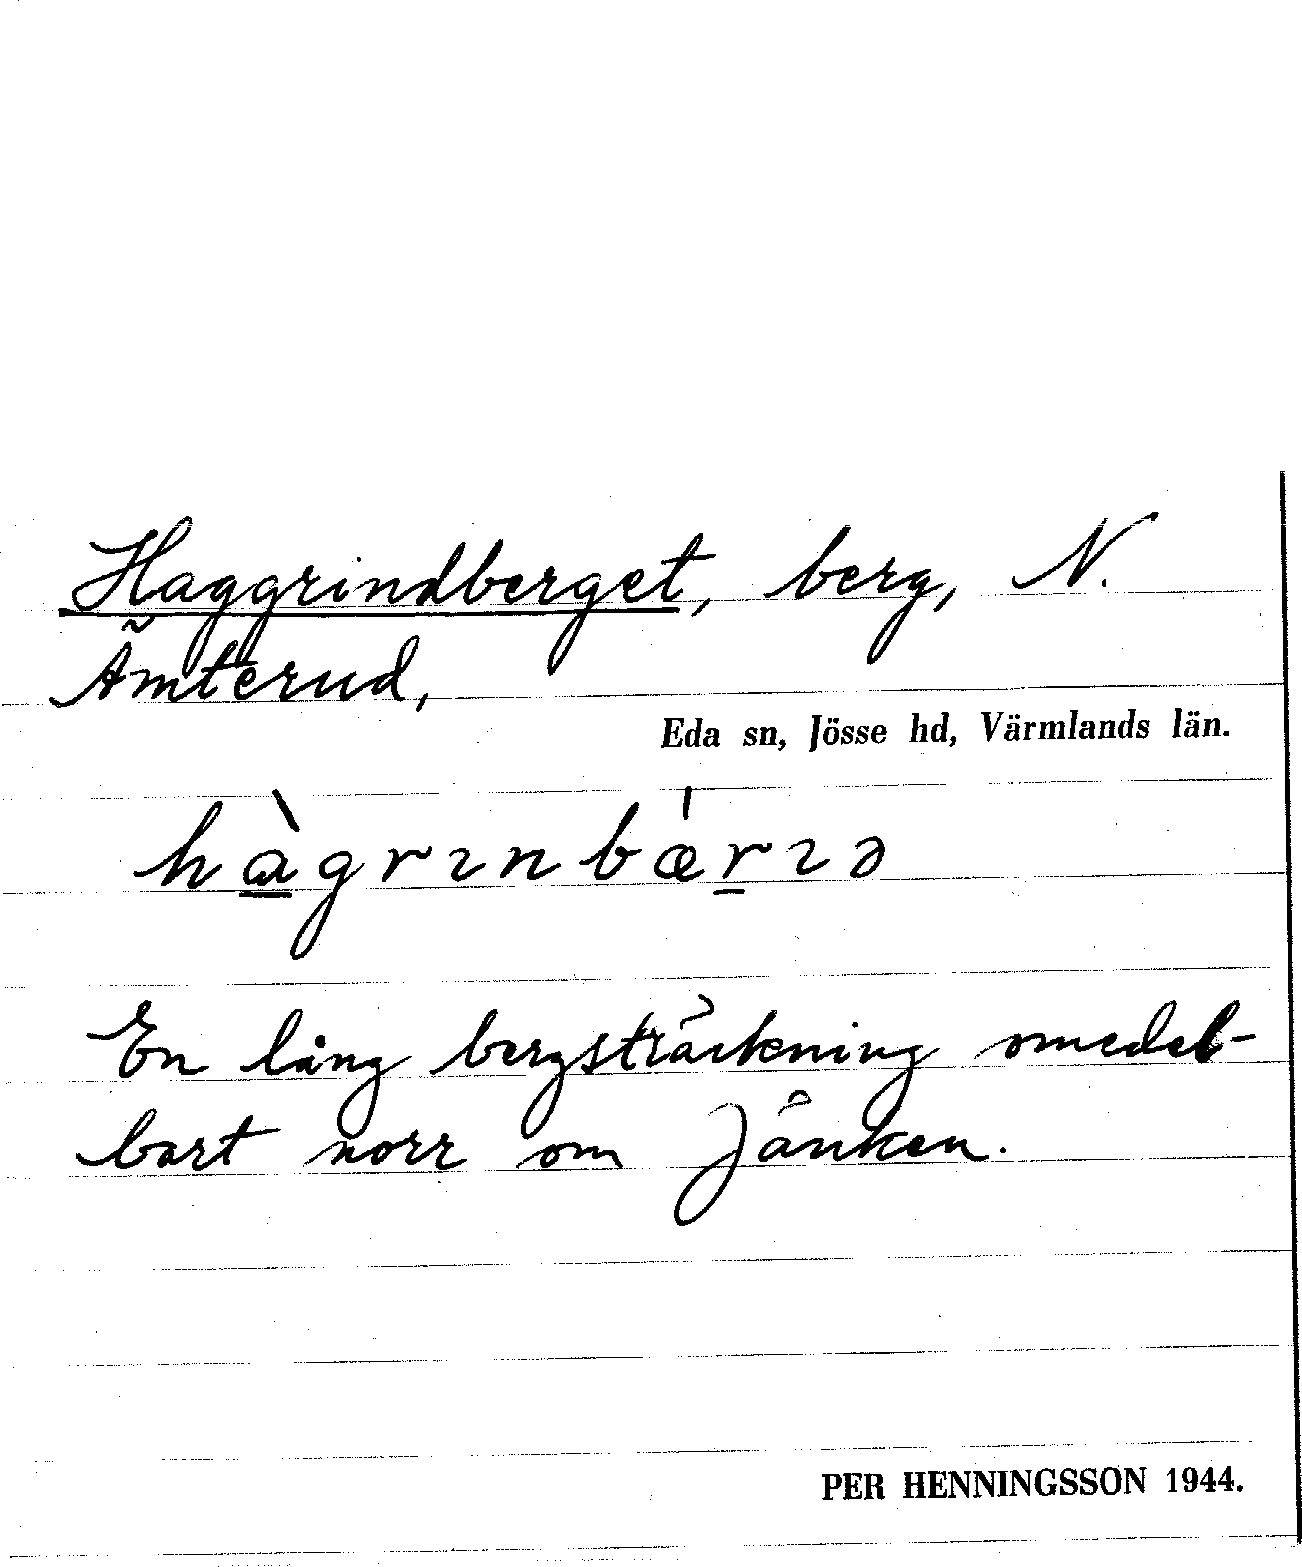 Haggrindberget, berg, N.
Ämterud,
Eda sn, Jösse hd, Värmlands län.
hàgrınbǽrıə
En lång bergsträckning omedel-
bart norr om Jänken.
PER HENNINGSSON 1944.